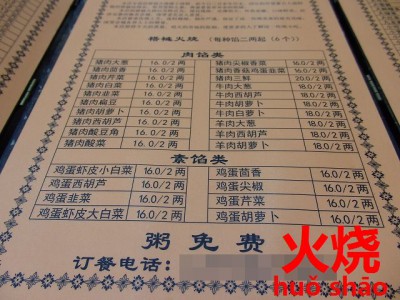 褡裢火烧(每种馅二两起(6个))
肉馅类
猪肉大葱 16.0/2两 猪肉尖椒香菜 16.0/2两
猪肉茴香 16.0/2两 猪肉香菇鸡蛋韭菜 16.0/2两
猪肉芹菜 16.0/2两 猪肉三鲜 20.0/2两
猪肉韭菜 16.0/2两 牛肉大葱 18.0/2两
猪肉扁豆 16.0/2两 牛肉胡萝卜 18.0/2两
猪肉白菜 16.0/2两 牛肉西葫芦 18.0/2两
猪肉西葫芦 16.0/2两 羊肉大葱 18.0/2两
猪肉酸豆角 16.0/2两 羊肉西葫芦 18.0/2两
猪肉酸菜 16.0/2两 羊肉胡萝卜 18.0/2两
素馅类
鸡蛋虾皮小白菜 16.0/2两 鸡蛋茴香 16.0/2两
鸡蛋西胡芦 16.0/2两 鸡蛋尖椒 16.0/2两
鸡蛋韭菜 16.0/2两 鸡蛋芹菜 16.0/2两
鸡蛋虾皮大白菜 16.0/2两 鸡蛋胡萝卜 16.0/2两
粥免费
订餐电话:
火烧
huǒ shāo